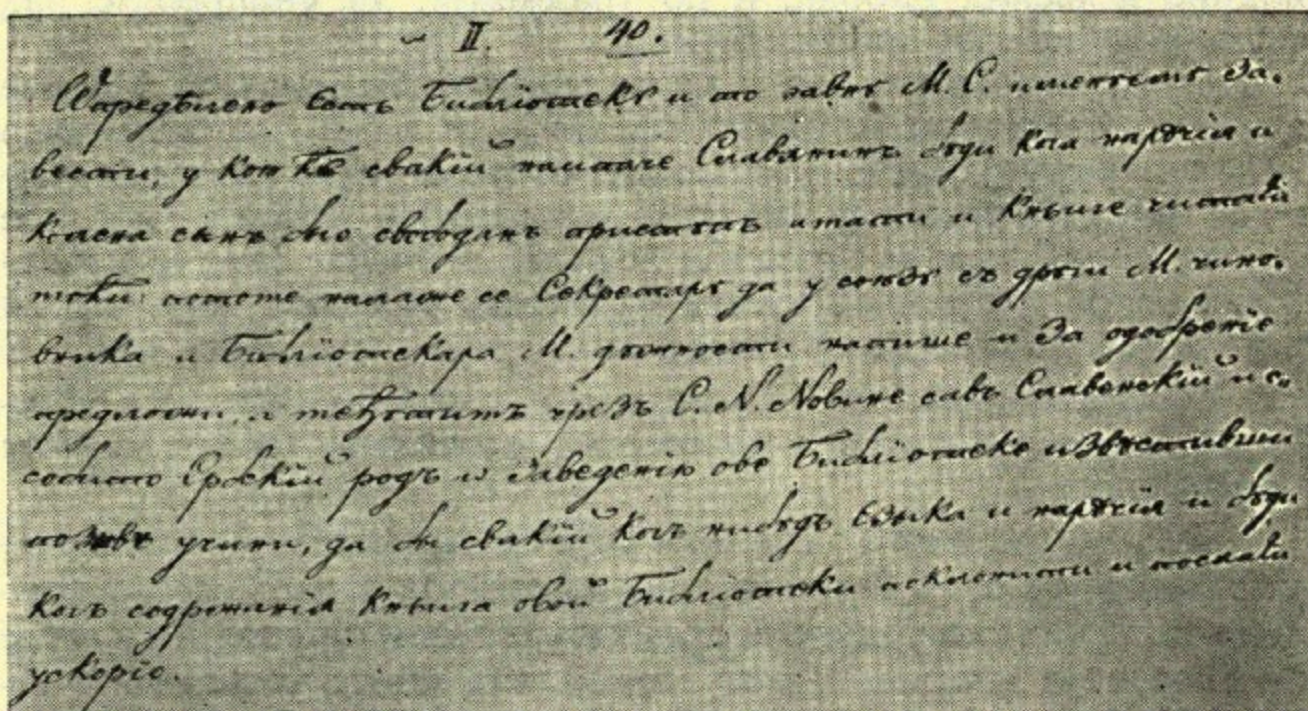 II. 40.
Ѿпредѣлено єсть Библїотекꙋ и то явнꙋ М. С. именемъ За-
вести, у кою ће свакїй наипаче Славянинъ буди кога нарѣчїя и
колена сынъ быо свободанъ приступъ имати и Књиге читати
моћи: потоме налаже се Секретарꙋ да у союзꙋ съ дрꙋги М. чино-
вника и Библїотекара М. дꙋжности напише и За одобренїе
предложи, и чрезъ С. N. Novine савъ Славенскїй и о-
собито Србскїй родъ о Заведенїю ове Библїотеке извѣстивши
позивъ учини, да бы свакїй когъ нибꙋдь єзыка и нарѣчїя и буди
когъ содержанїя Књига овой Библїотеки поклонити и послати
ускорїо.